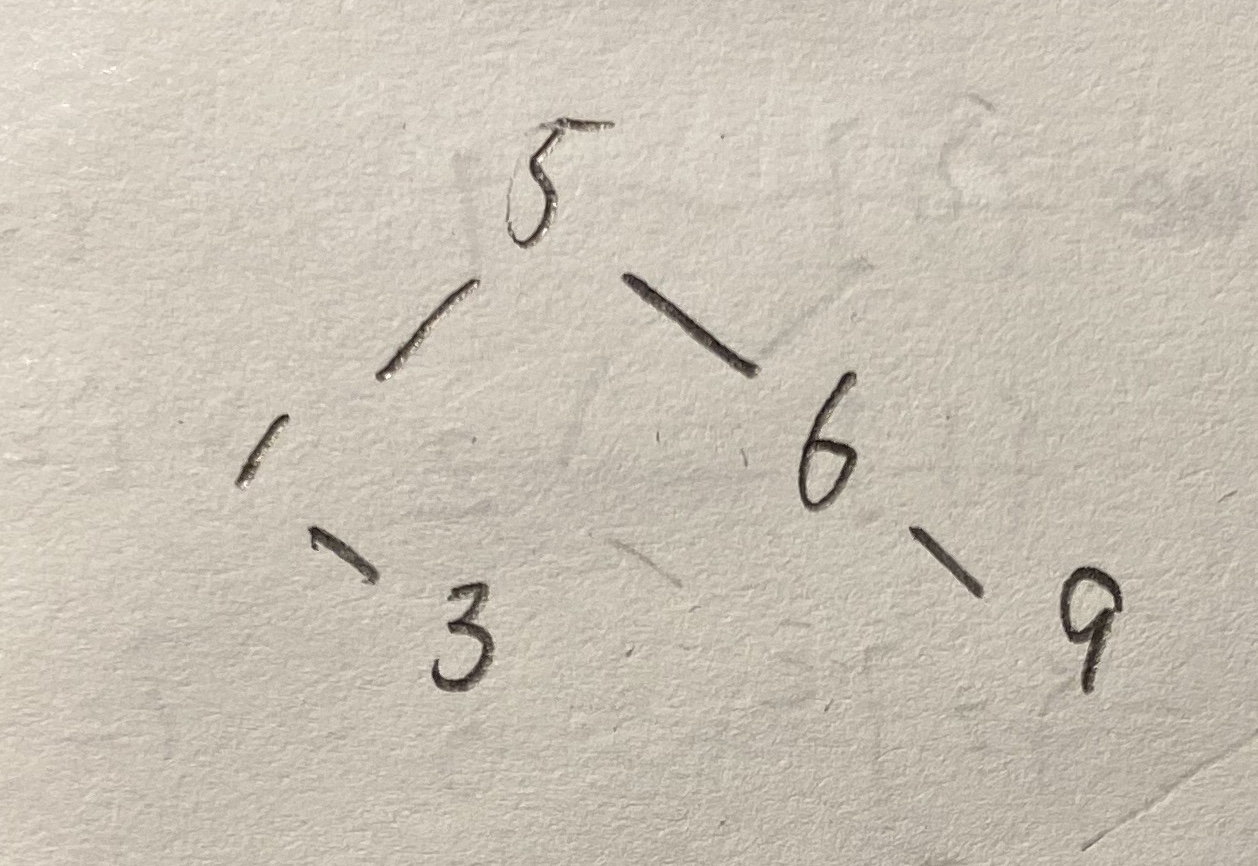 5
1 6
3 9